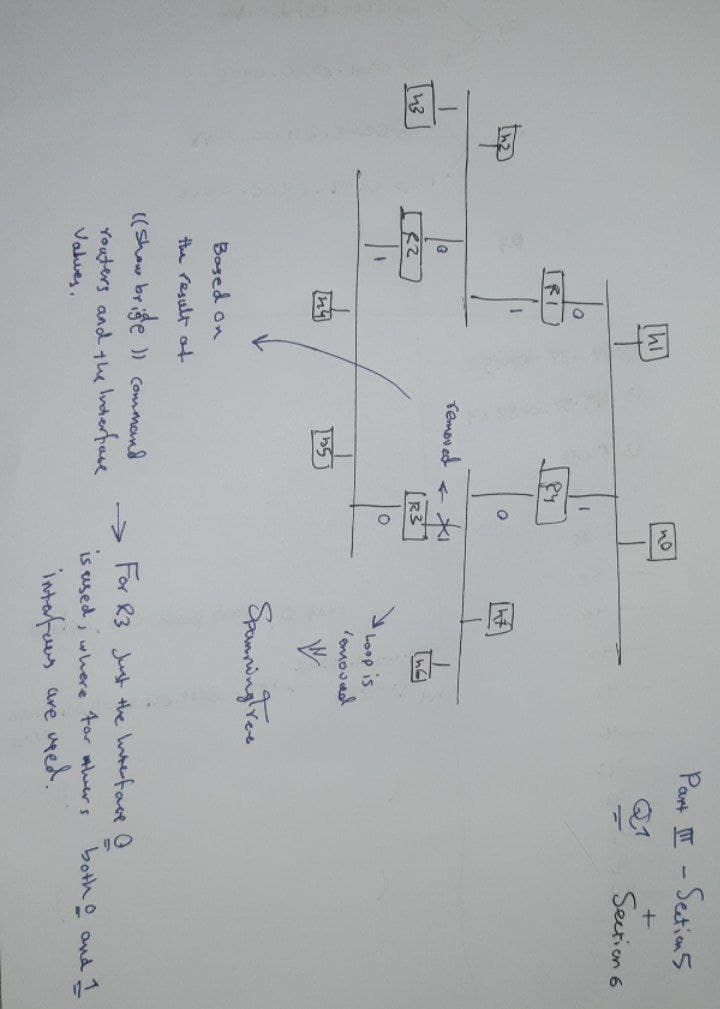 Part III - Section 5
Q1 + Section 6
h1
h0
0
1
R1
R4
1
0
h2
h7
h3
h6
0
removed ← X1
R2
R3
1
0
Loop is
removed
h4
h5
Spanning Tree
Based on
the result of
((Show brige)) command
routers and the Interface
Values.
→ For R3 Just the Interface 0
is used, where for others both 0 and 1
interfaces are used.